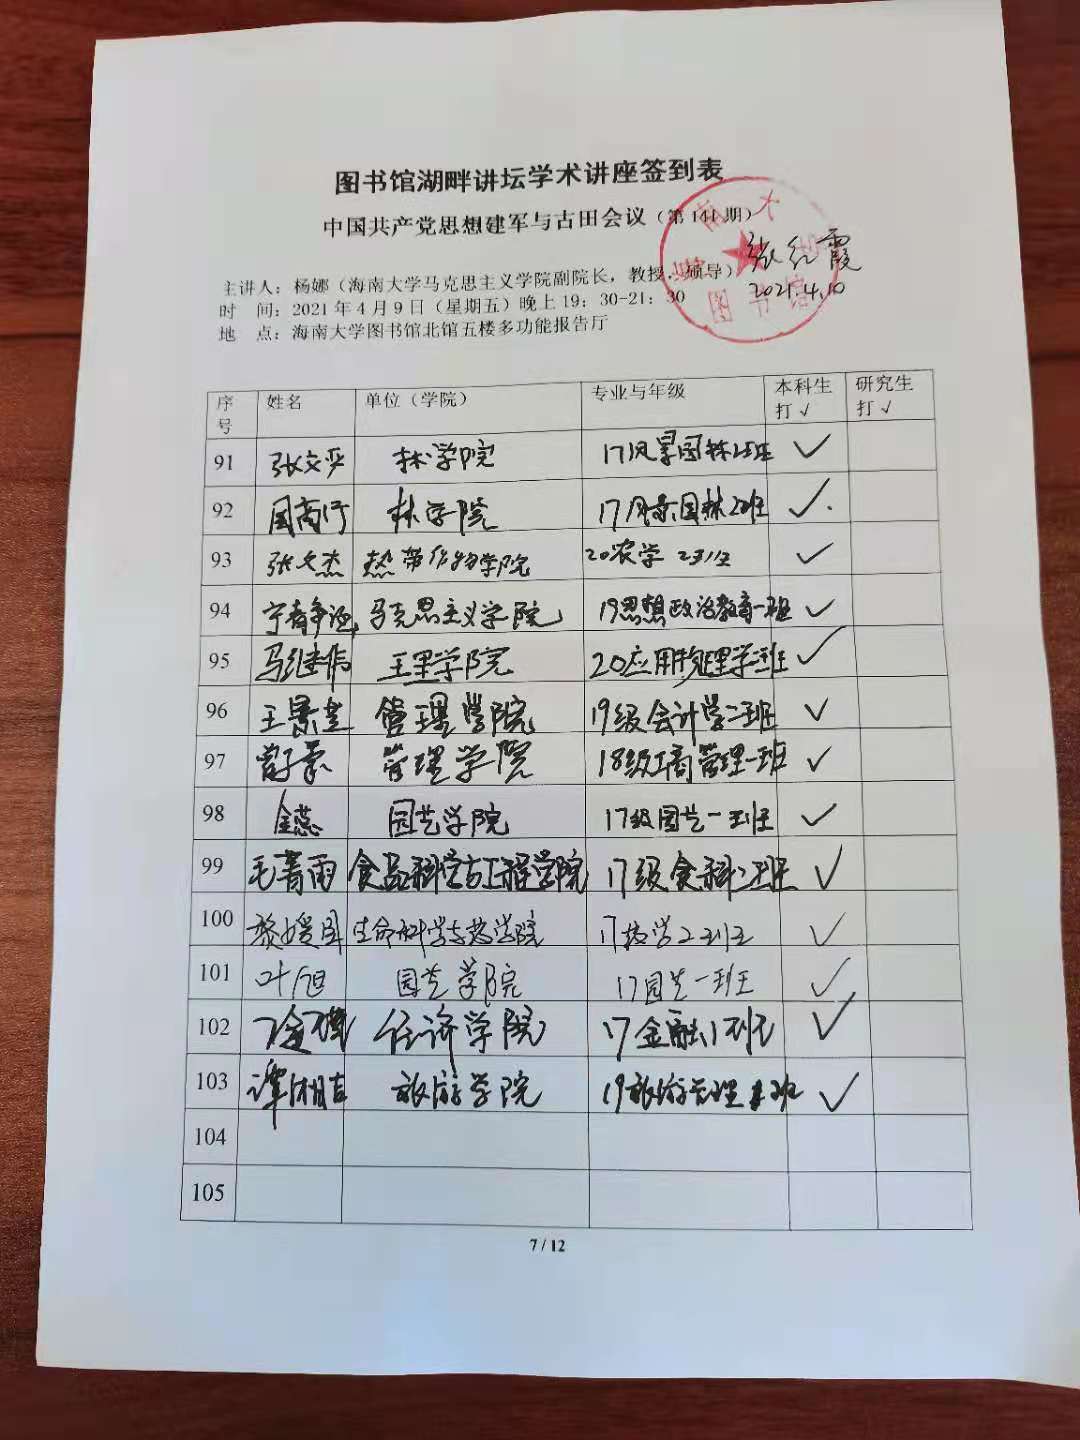 图书馆湖畔讲坛学术讲座签到表
中国共产党思想建军与古田会议（第141期）
张红霞
2021.4.10
海南大学
图书馆
主讲人：杨娜（海南大学马克思主义学院副院长，教授，硕导）
时 间：2021年4月9日（星期五）晚上19：30-21：30
地 点：海南大学图书馆北馆五楼多功能报告厅
序号 姓名 单位（学院） 专业与年级 本科生打√ 研究生打√
91 林学院 17风景园林2班 ✓
92 林学院 17风景园林2班 ✓
93 张文杰 热带作物学院 20农学2班 ✓
94 马克思主义学院 19思想政治教育一班 ✓
95 马继伟 理学院 20应用物理学班 ✓
96 管理学院 19级会计学二班 ✓
97 管理学院 18级工商管理一班 ✓
98 金蕊 园艺学院 17级园艺一班 ✓
99 毛菁雨 食品科学与工程学院 17级食科二班 ✓
100 黎媛 生命科学与药学院 17 2班 ✓
101 叶旭 园艺学院 17园艺一班 ✓
102 经济学院 17金融1班 ✓
103 谭湘吉 旅游学院 19旅游管理 2班 ✓
104
105
7 / 12